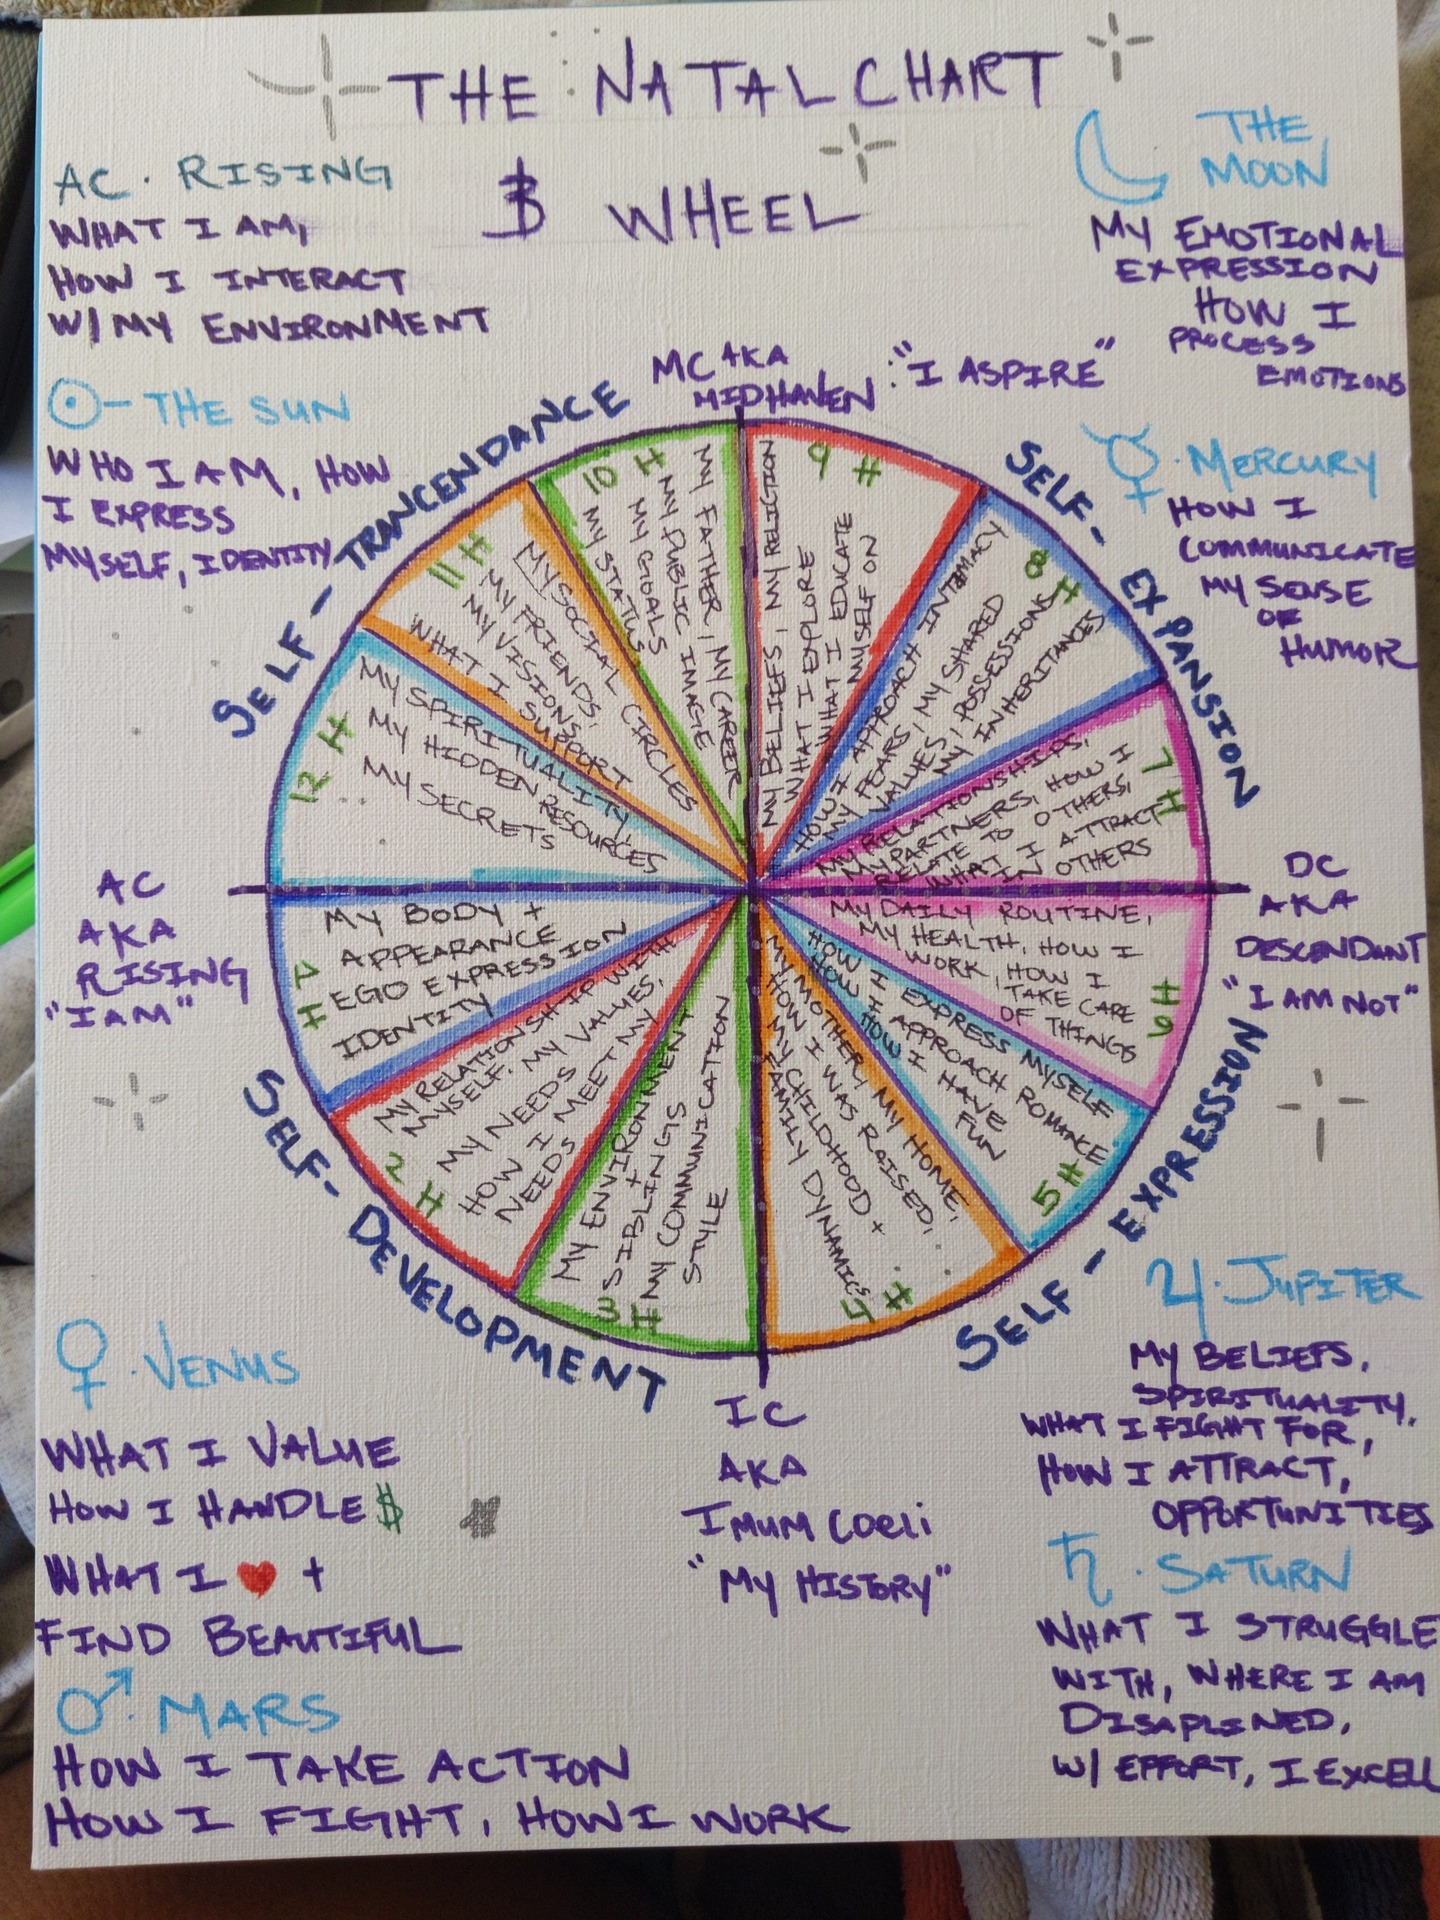 THE NATAL CHART
$ WHEEL
AC · RISING
WHAT I AM,
HOW I INTERACT
W/ MY ENVIRONMENT
THE SUN
WHO I AM, HOW
I EXPRESS
MYSELF, IDENTITY
THE
MOON
MY EMOTIONAL
EXPRESSION
HOW I
PROCESS
EMOTIONS
MERCURY
HOW I
COMMUNICATE
MY SENSE
OF
HUMOR
MC AKA
MIDHAVEN : "I ASPIRE"
SELF - TRANCENDANCE
SELF - EXPANSION
10 H
MY FATHER, MY CAREER
MY PUBLIC IMAGE
MY GOALS
MY STATUS
9 H
MY BELIEFS, MY RELIGION
WHAT I EXPLORE
WHAT I EDUCATE
MYSELF ON
11 H
MY SOCIAL CIRCLES
MY FRIENDS,
MY VISIONS,
WHAT I SUPPORT
8 H
HOW I APPROACH INTIMACY
MY FEARS, MY SHARED
VALUES, POSSESSIONS
MY INHERITANCES
12 H
MY SPIRITUALITY,
MY HIDDEN RESOURCES
MY SECRETS
7 H
MY RELATIONSHIPS,
MY PARTNERS, HOW I
RELATE TO OTHERS,
WHAT I ATTRACT
IN OTHERS
AC
AKA
RISING
"I AM"
DC
AKA
DESCENDANT
"I AM NOT"
1 H
MY BODY +
APPEARANCE
EGO EXPRESSION
IDENTITY
6 H
MY DAILY ROUTINE,
MY HEALTH, HOW I
WORK, HOW I
TAKE CARE
OF THINGS
2 H
MY RELATIONSHIP WITH
MYSELF, MY VALUES,
MY NEEDS
HOW I MEET MY
NEEDS
5 H
HOW I EXPRESS MYSELF
HOW I APPROACH ROMANCE
HOW I HAVE
FUN
3 H
MY ENVIRONMENT
+
SIBLINGS
MY COMMUNICATION
STYLE
4 H
MY MOTHER, MY HOME,
HOW I WAS RAISED,
MY CHILDHOOD +
FAMILY DYNAMICS
SELF - DEVELOPMENT
SELF - EXPRESSION
IC
AKA
IMUM COELI
"MY HISTORY"
· VENUS
WHAT I VALUE
HOW I HANDLE $
WHAT I ❤ +
FIND BEAUTIFUL
MARS
HOW I TAKE ACTION
HOW I FIGHT, HOW I WORK
· JUPITER
MY BELIEFS,
SPIRITUALITY,
WHAT I FIGHT FOR,
HOW I ATTRACT,
OPPORTUNITIES
· SATURN
WHAT I STRUGGLE
WITH, WHERE I AM
DISAPLINED,
W/ EFFORT, I EXCELL